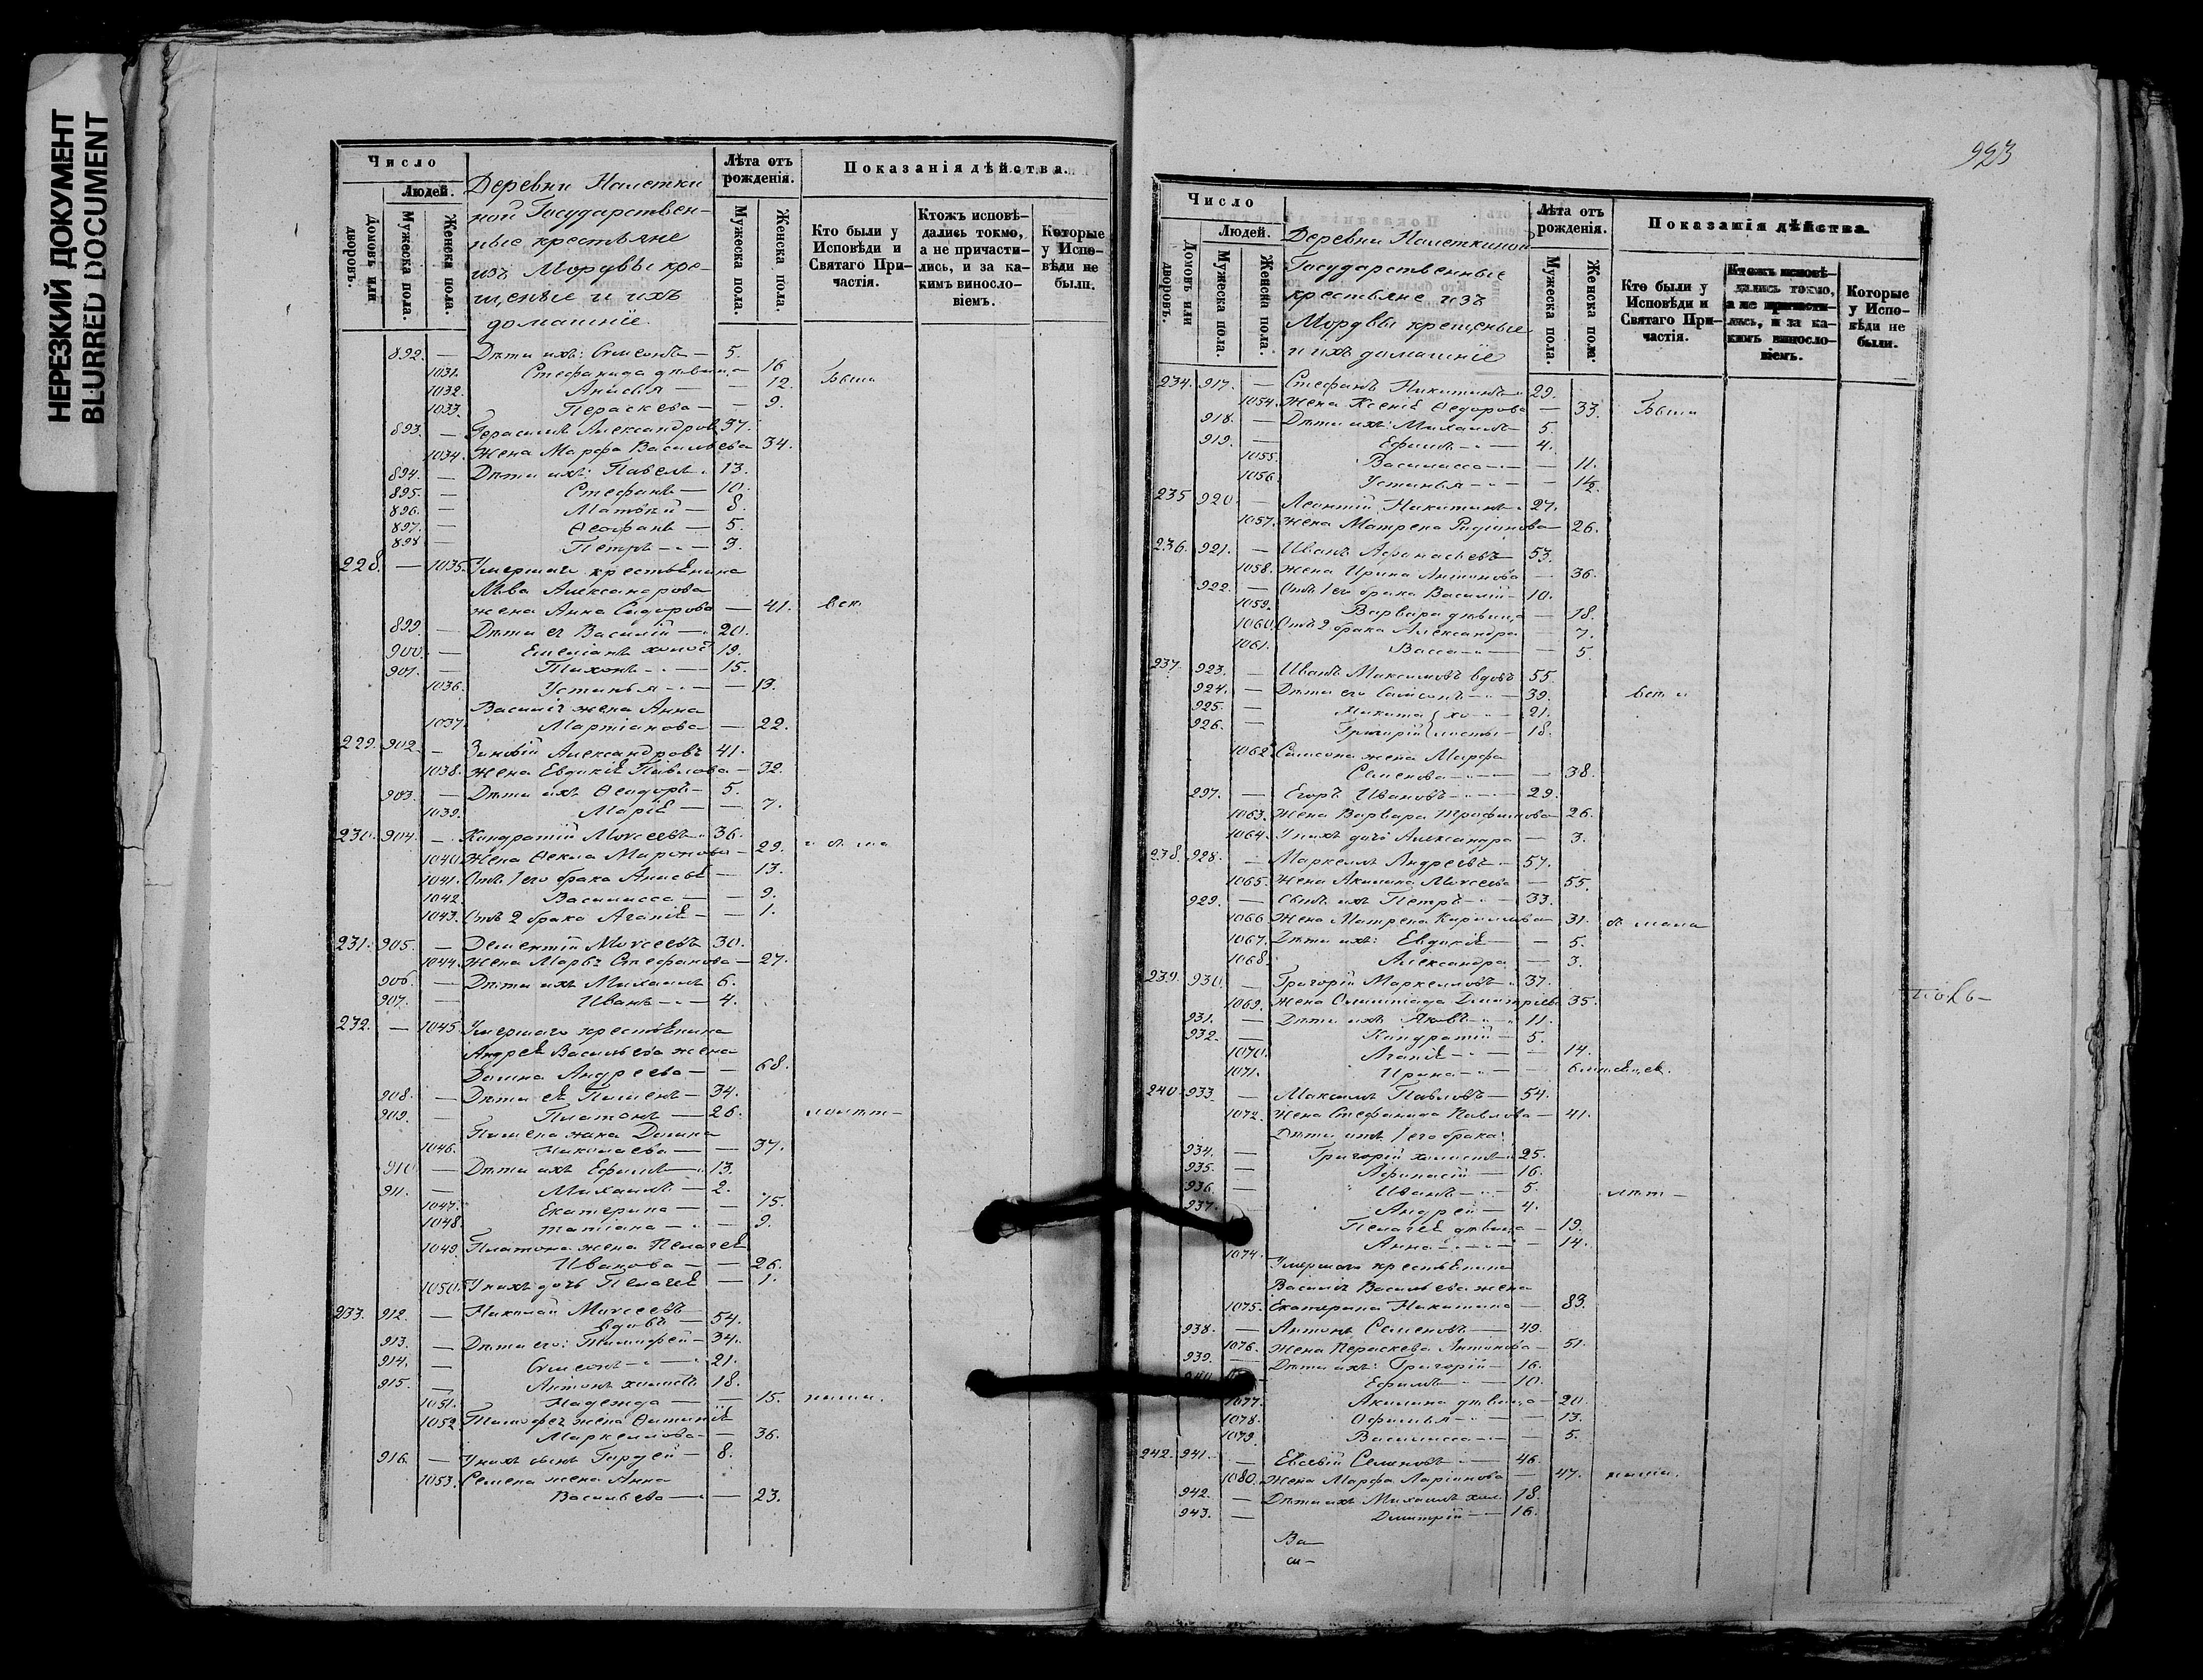 НЕРЕЗКИЙ ДОКУМЕНТ
BLURRED DOCUMENT
Число
Людей.
Домовъ или дворовъ.
Мужеска пола.
Женска пола.
Деревни Налеткиной Государственные крестьяне изъ Мордвы крещеные и ихъ домашніе
Лѣта отъ рожденія.
Мужеска пола.
Женска пола.
Показанія дѣйства.
Кто были у Исповѣди и Святаго Причастія.
Ктожъ исповѣдались токмо, а не причастились, и за какимъ винословіемъ.
Которые у Исповѣди не были.
892. — Дѣти ихъ: Симеонъ — 5.
1031. Стефанида дѣвица — 16
1032. Анисья — — 12. Были
1033. Параскева — — 9.
893. — Герасимъ Александров 37.
1034. Жена Марфа Васильева 34.
894. — Дѣти ихъ: Павелъ 13.
895. — Стефанъ — 10.
896. — Матвѣй — 8.
897. — Ѳеофанъ — 5.
898 — Петръ — 3.
228. — 1035. Умершаго крестьянина
Льва Александрова
жена Анна Сидорова — 41.
899. — Дѣти ея Василій — 20.
900. — Емеліанъ холос 19.
901. — Тихонъ — 15.
1036. Устинья — — 13.
Василія жена Анна
1037. Мартіанова — 22.
229. 902. — Зиновій Александровъ 41.
1038. Жена Евдокія Павлова — 32.
903. — Дѣти ихъ Ѳеодоръ — 5.
1039. Марія — — 7.
230. 904. — Кондратій Моисеевъ 36.
1040. Жена Ѳекла Миронова — 29.
1041. Отъ 1 его брака Анисья — 13.
1042. Василисса — — 9.
1043. Отъ 2 брака Агапія — — 1.
231. 905. — Дементій Моисеевъ 30.
1044. Жена Марья Стефанова — 27.
906. — Дѣти ихъ Михаилъ 6.
907. — Иванъ — 4.
232. — 1045. Умершаго крестьянина
Андрея Васильева жена
Домна Андреева — — 68.
908. — Дѣти ея Пименъ — 34.
909. — Платонъ — 26.
Пимена жена Домна
1046. Николаева — — 37.
910. — Дѣти ихъ Ефимъ — 13.
911. — Михаилъ — 2.
1047. Екатерина — — 15.
1048. Татіана — — 9.
1049. Платона жена Пелагея
Иванова — — 26.
1050. У нихъ дочь Пелагея — 1.
233. 912. — Николай Моисеевъ
вдовъ — 54.
913. — Дѣти его: Тимофей — 34.
914. — Симеонъ — 21.
915. — Антонъ холостъ 18.
1051. Надежда — — 15.
1052. Тимофея жена
Маркеллова — — 36.
916. — У нихъ сынъ Гордей — 8.
1053. Семена жена Анна
Васильева — — 23.
923
Число
Людей.
Домовъ или дворовъ.
Мужеска пола.
Женска пола.
Деревни Налеткиной Государственные крестьяне изъ Мордвы крещеные и ихъ домашніе
Лѣта отъ рожденія.
Мужеска пола.
Женска пола.
Показанія дѣйства.
Кто были у Исповѣди и Святаго Причастія.
Ктожъ исповѣдались токмо, а не причастились, и за какимъ винословіемъ.
Которые у Исповѣди не были.
234. 917. — Стефанъ Никитинъ 29.
1054. Жена Ксенія Ѳедорова — 33. Были
918. — Дѣти ихъ: Михаилъ 5.
919. — Ефимъ — 4.
1055. Василисса — — 11.
1056. Устинья — — 1½.
235 920. — Леонтій Никитинъ 27.
1057. Жена Матрена Родіонова — 26.
236. 921. — Иванъ Афонасьевъ 53.
1058. Жена Ирина Антонова — 36.
922. — Отъ 1 его брака Василій — 10.
1059. Варвара дѣвица — 18.
1060. Отъ 2 брака Александра — 7.
1061. Васса — — 5.
237. 923. — Иванъ Максимовъ вдовъ 55.
924. — Дѣти его Самсонъ — 39.
925. — Никита } хо — 21.
926. — Григорій } лосты — 18.
1062. Самсона жена Марфа
Семенова — — 38.
297. — Егоръ Ивановъ — 29.
1063. Жена Варвара Трофимова — 26.
1064. У нихъ дочь Александра — 3.
238. 928. — Маркеллъ Андреевъ — 57.
1065. Жена Акилина Моисеева — 55.
929. — Сынъ ихъ Петръ — 33.
1066 Жена Матрена Кириллова — 31.
1067. Дѣти ихъ: Евдокія — — 5.
1068. Александра — 3.
239. 930. — Григорій Маркелловъ 37.
1069. Жена Олимпіада Дмитріев 35.
931. — Дѣти ихъ Яковъ — 11.
932. — Кондратій — 5.
1070. Агапія — — 14.
1071. Ирина — — 6 мѣсяцев.
240. 933. — Максимъ Павловъ — 54.
1072. Жена Стефанида Павлова — 41.
Дѣти отъ 1 его брака:
934. — Григорій холостъ 25.
935. — Афонасій — 16.
936. — Иванъ — 5.
937. Андрей — 4.
Пелагея дѣвица — 19.
1074. Анна — — 14.
Умершаго крестьянина
Василія Васильева жена
1075. Екатерина Никитина — 83.
938. — Антонъ Семеновъ — 49.
1076. Жена Параскева Антонова — 51.
939. — Дѣти ихъ: Григорій — 16.
940. Ефимъ — 10.
1077. Акилина дѣвица — 20.
1078. Офимья — — 13.
1079. Василисса — — 5.
242. 941. — Евсевій Семеновъ — 46.
1080. Жена Марфа Ларіонова — 47.
942. — Дѣти ихъ Михаилъ хол. 18.
943. — Дмитрій — 16.
Ва
си-